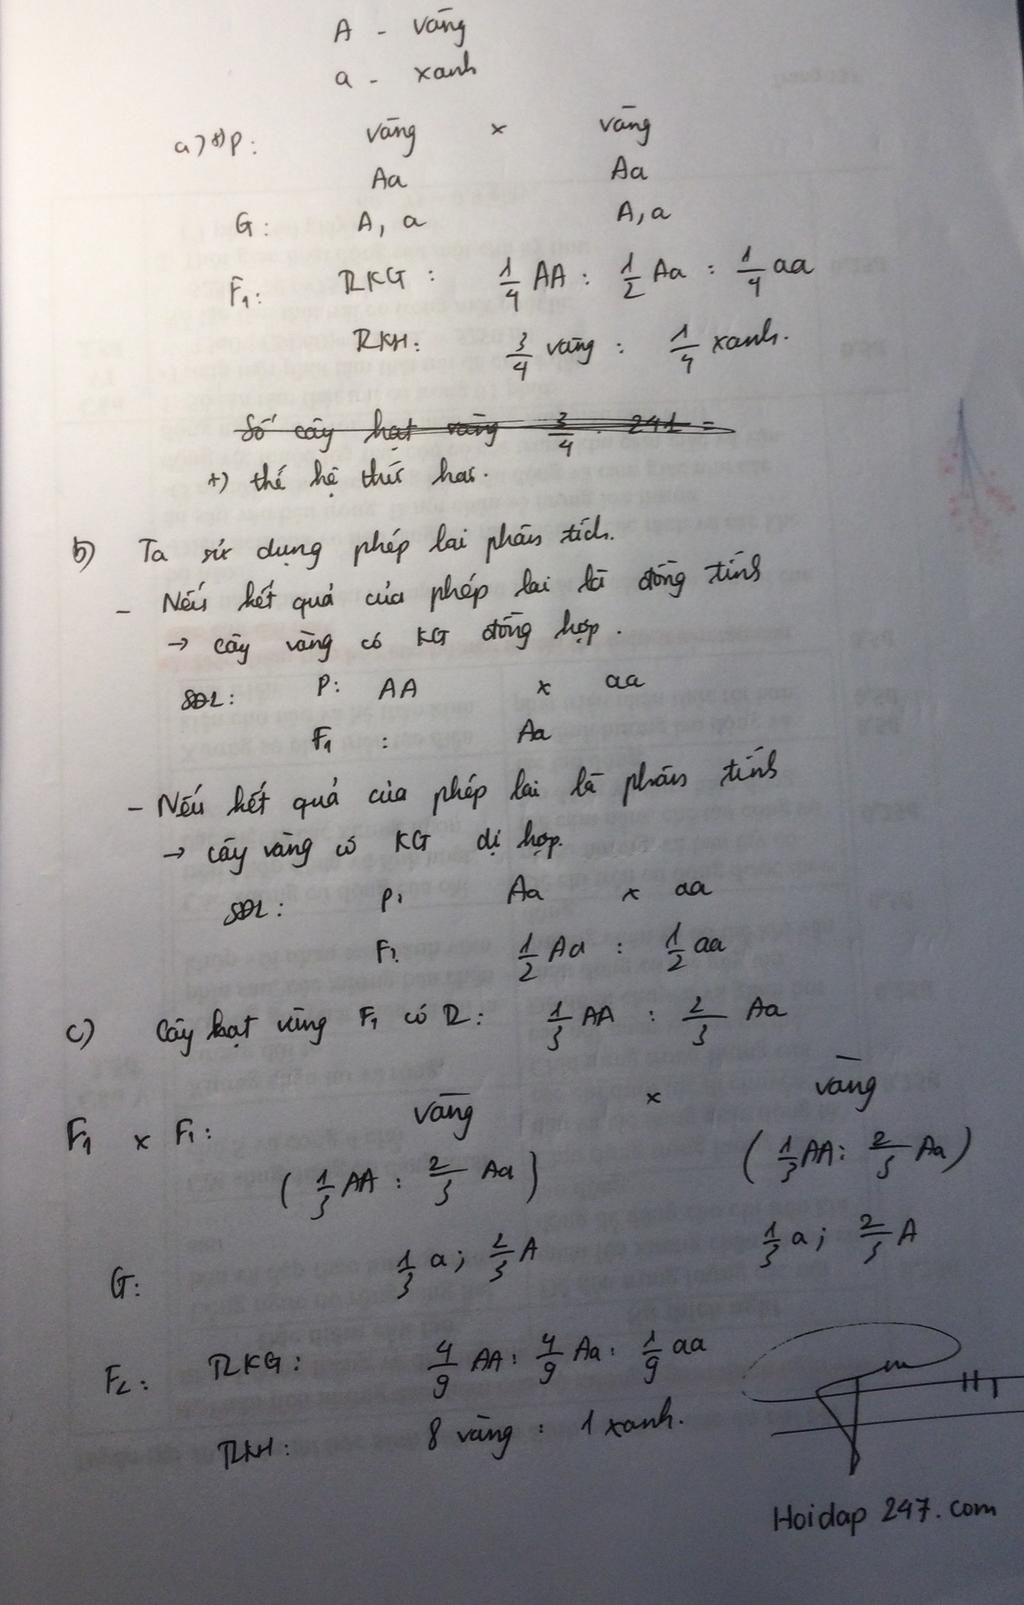 A - vàng
a - xanh
a) *) P: vàng x vàng
Aa Aa
G: A, a A, a
F1: TLKG: 1/4 AA : 1/2 Aa : 1/4 aa
TLKH: 3/4 vàng : 1/4 xanh.
Số cây hạt vàng 3/4 . 241 =
+) thế hệ thứ hai.
b) Ta sử dụng phép lai phân tích.
- Nếu kết quả của phép lai là đồng tính
→ cây vàng có KG đồng hợp.
SĐL: P: AA x aa
F1 : Aa
- Nếu kết quả của phép lai là phân tính
→ cây vàng có KG dị hợp.
SĐL: P: Aa x aa
F1: 1/2 Aa : 1/2 aa
c) Cây hạt vàng F1 có TL: 1/3 AA : 2/3 Aa
F1 x F1: vàng x vàng
(1/3 AA : 2/3 Aa) (1/3 AA : 2/3 Aa)
G: 1/3 a; 2/3 A 1/3 a; 2/3 A
F2: TLKG: 4/9 AA : 4/9 Aa : 1/9 aa
TLKH: 8 vàng : 1 xanh.
Hoidap 247.com